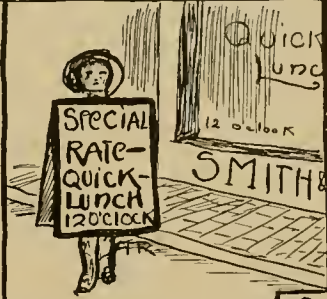 SPECIAL
RATE-
QUICK-
LUNCH
12 O'CLOCK
Quick
Lunc
12 o'clock
SMITH&